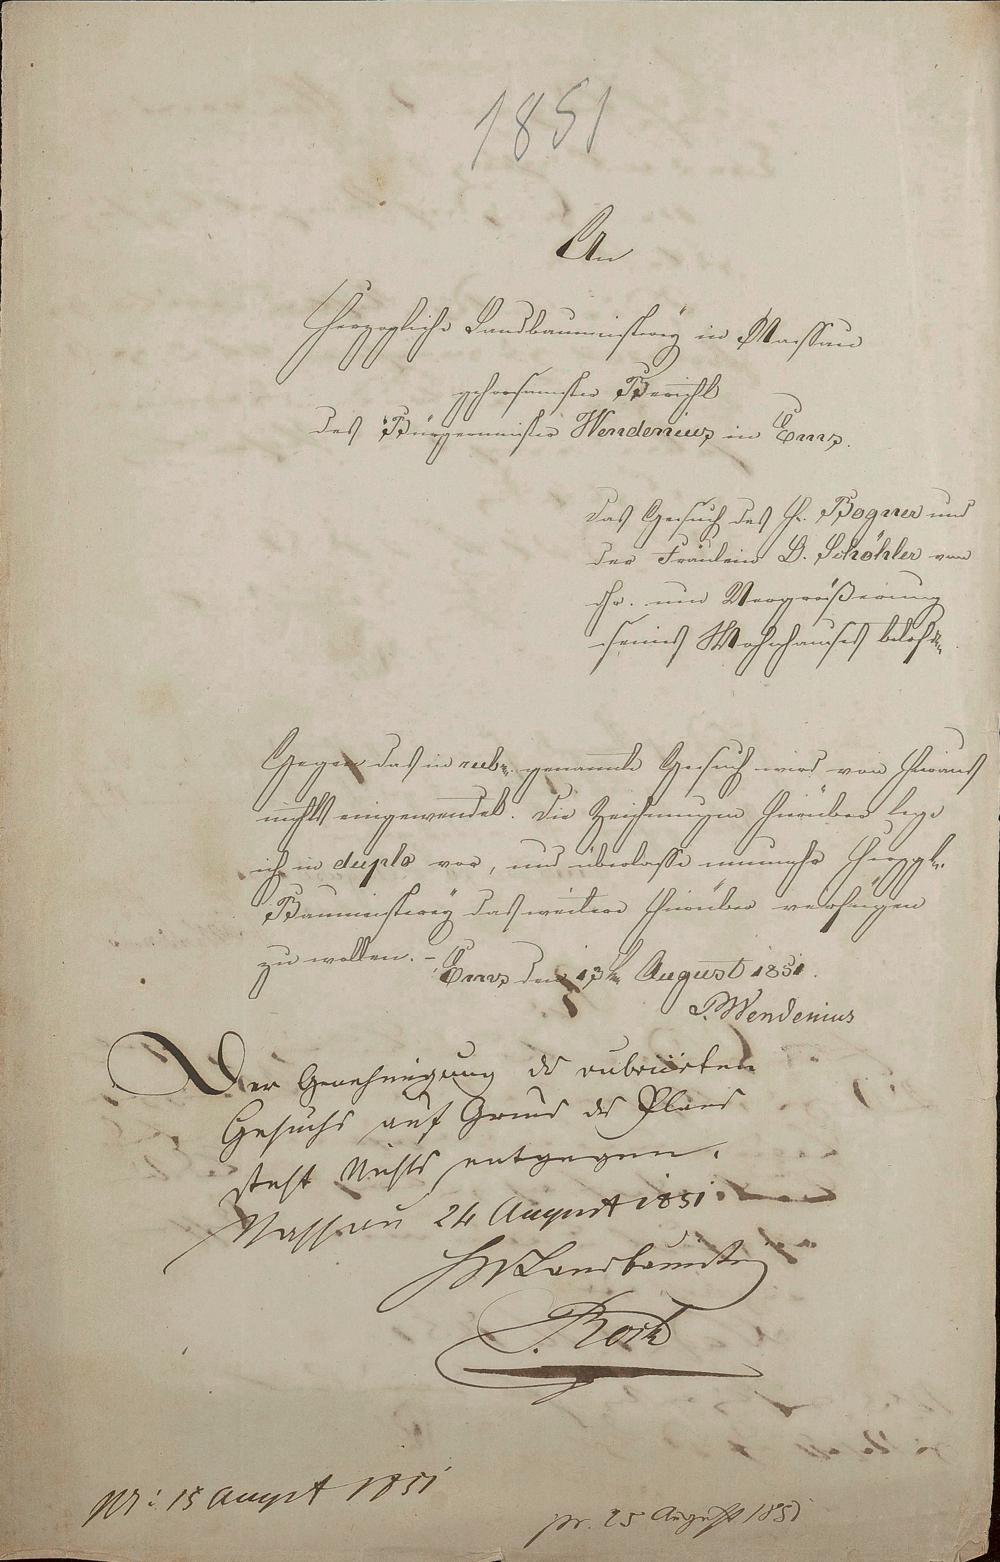 1851
An
Herzogliche Landbaumeisterey in Nassau
gehorsamster Bericht
des Bürgermeister Wendenius in Ems.
das Gesuch des H. Bogner und
der Fräulein D. Schöhler von
hr. um Vergrößerung
seines Wohnhauses betr.
Gegen das in rubr. genannte Gesuch wird von hieraus
nichts eingewendet. Die Zeichnungen hierüber lege
ich in duplo vor, und überlasse nunmehr Herzgl.
Baumeisterey das weitere hierüber verfügen
zu wollen. –
Ems den 13ten August 1851.
Wendenius
Der Genehmigung des rubricirten
Gesuchs auf Grund des Plans
steht Nichts entgegen.
Nassau 24 August 1851.
HN Landbaumstr
Rock
15 August 1851
pr. 25 August 1851